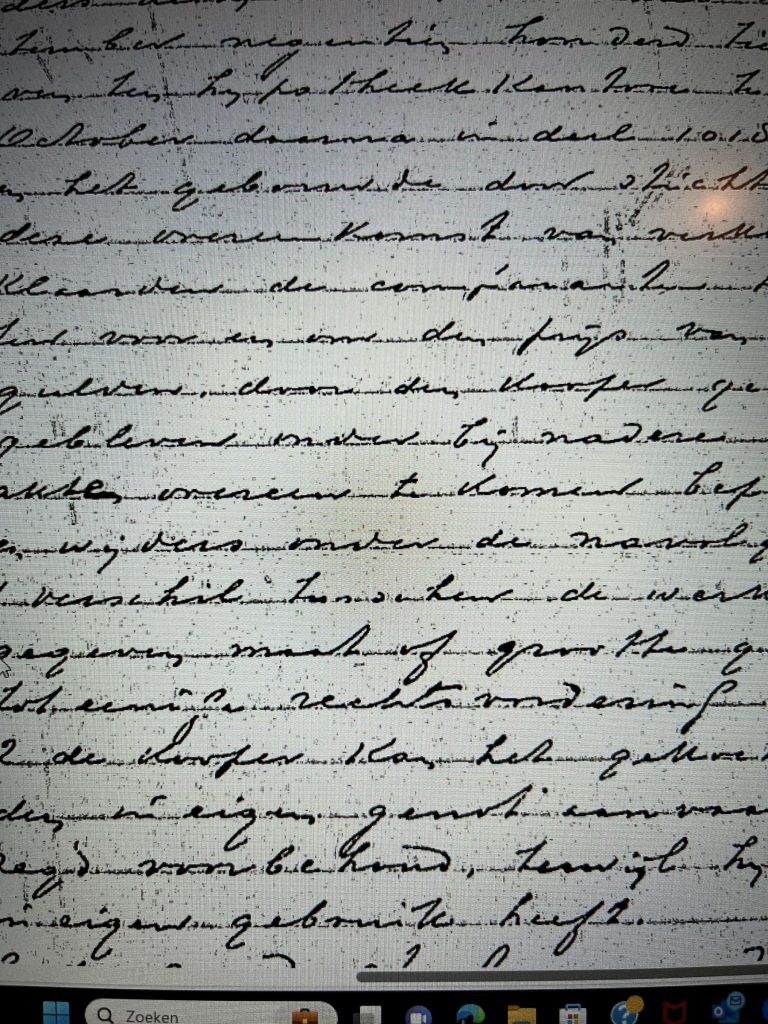 tember negentien honderd tie
ven ten hypotheek kantore te
October daarna in deel 1018
en het gebouwde door sticht
deze overeenkomst van verk
klaarden de comparanten
ten voor en om den prijs van
gulden, door den kooper ge
gebleven onder bij nadere
akte overeen te komen bep
en wijders onder de navolg
verschil tusschen de werk
gegeven maat of grootte g
tot eenige rechtsvordering
2 de kooper kan het gekoch
den in eigen genot aanvaa
regd voorbehoud, terwijl hy
in eigen gebruik heeft.
Zoeken